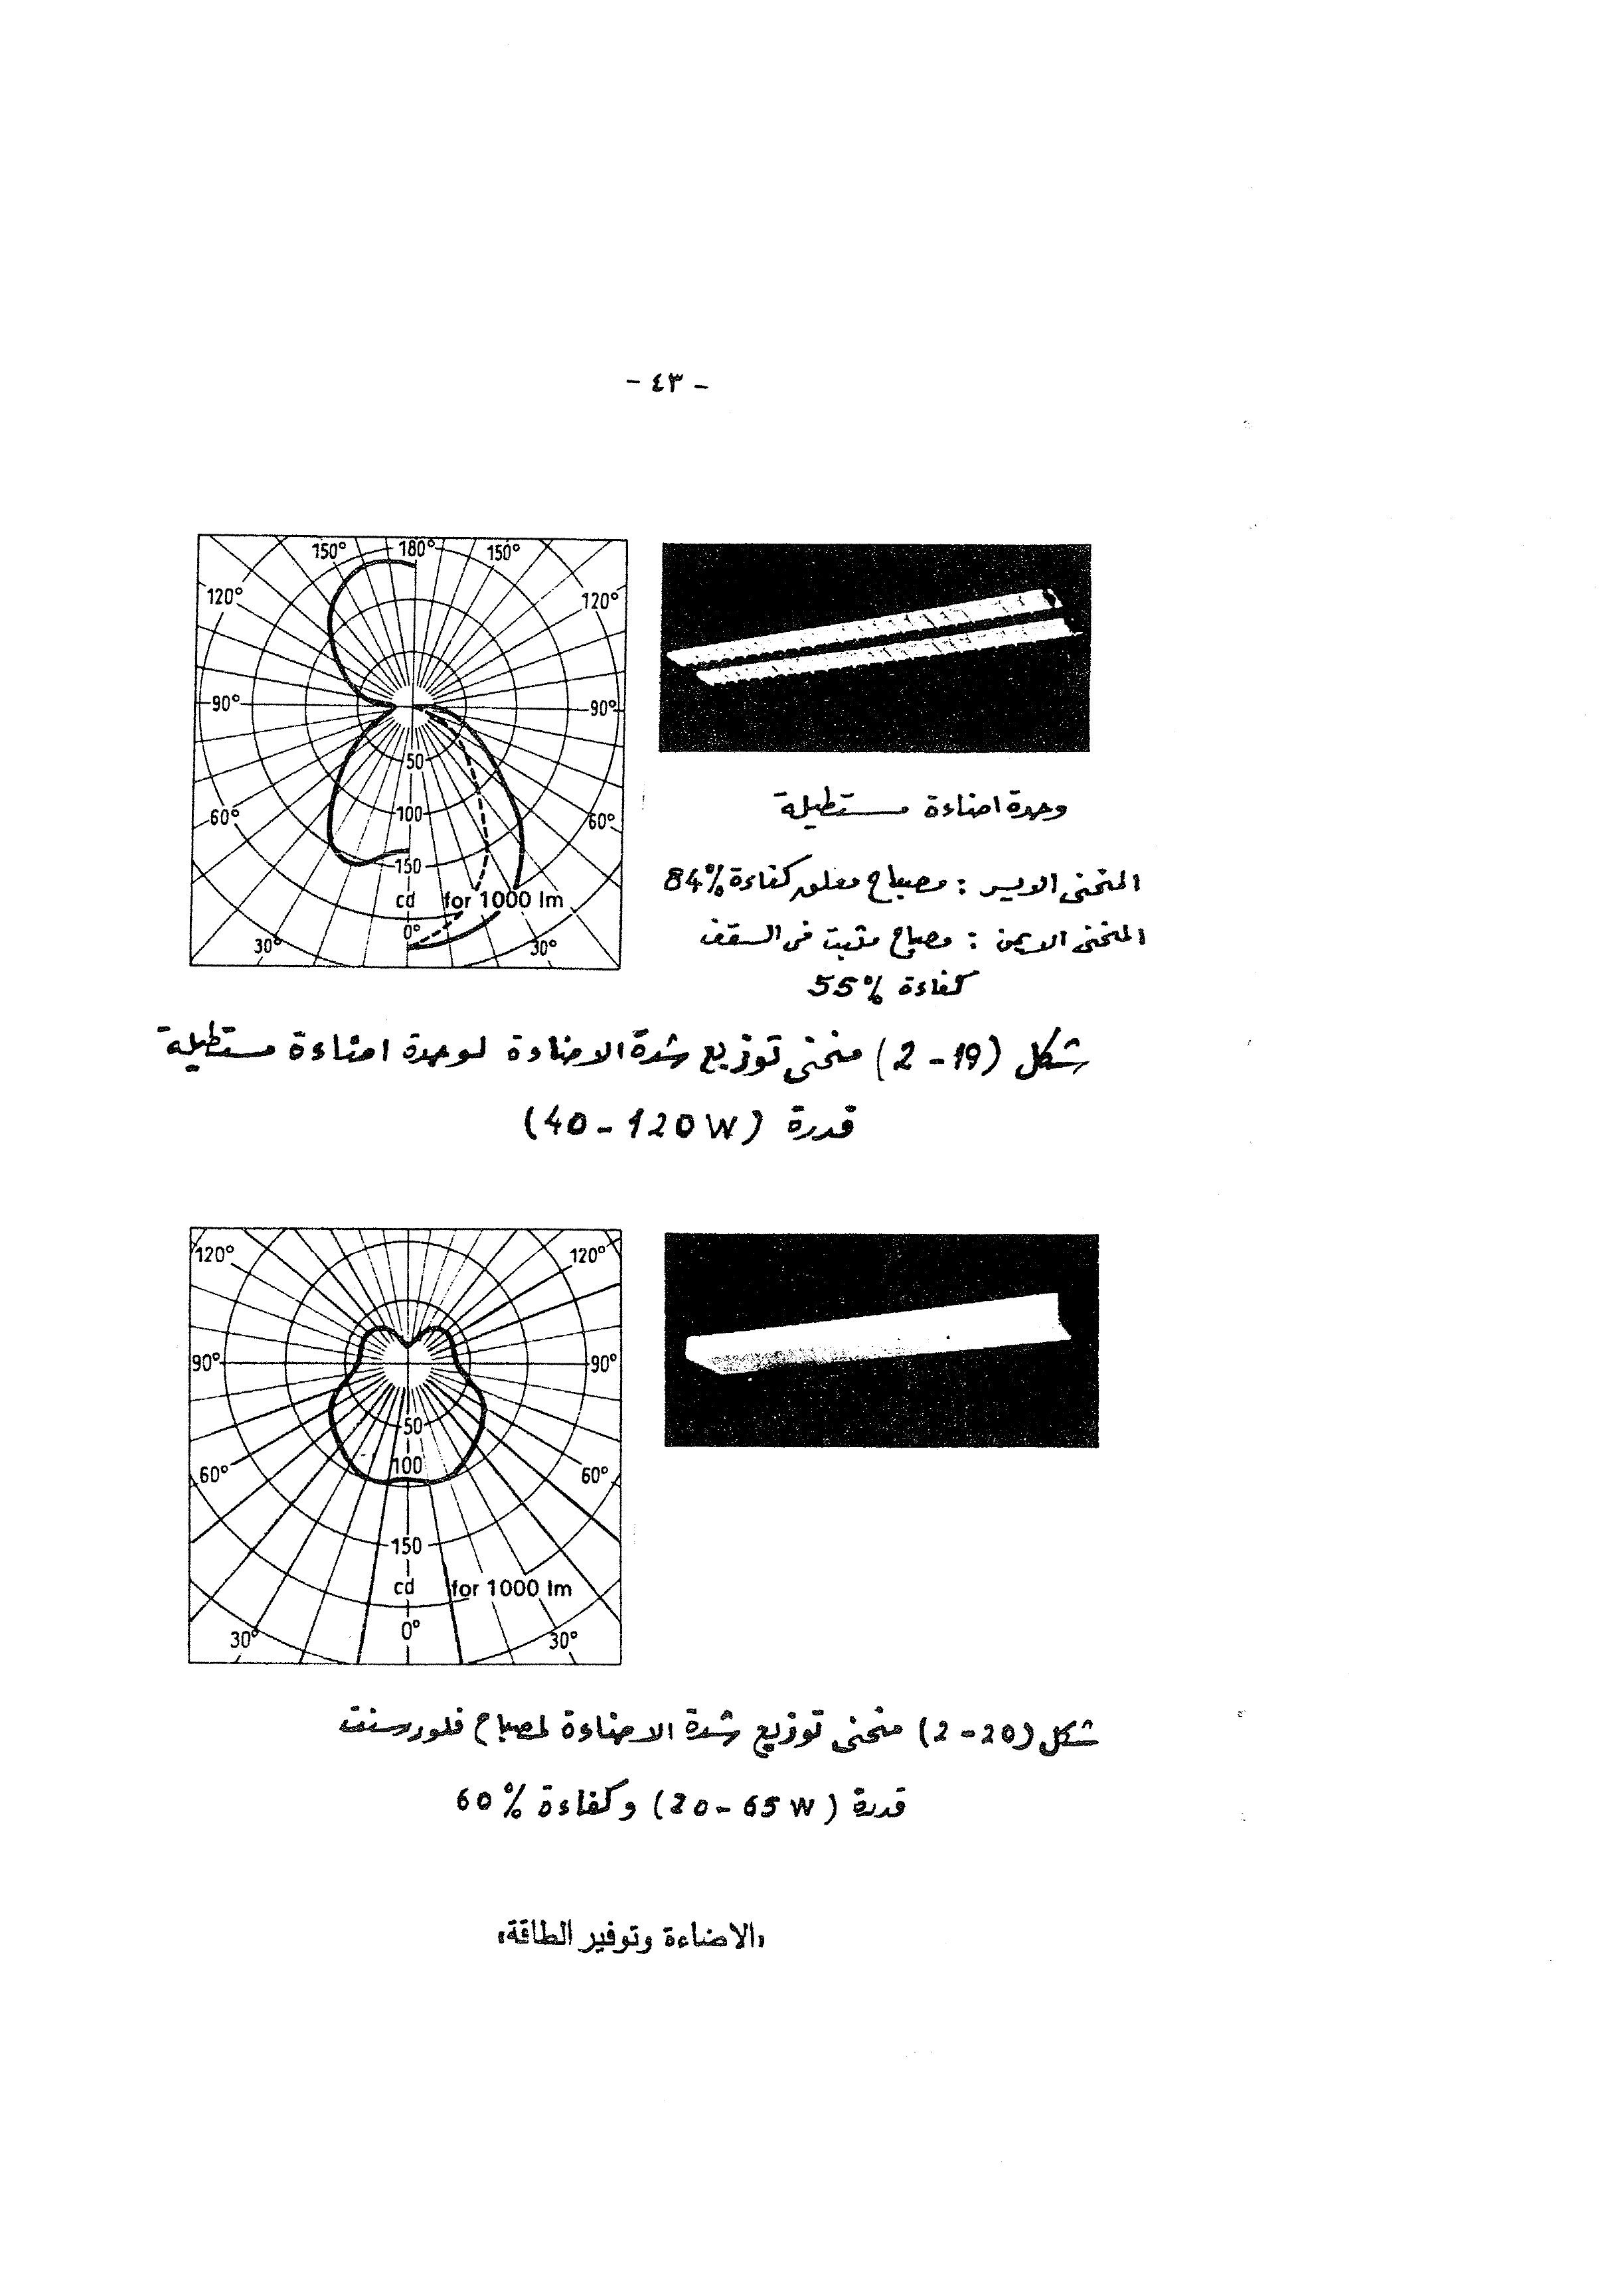 - ٤٣ -
150° 180° 150°
120° 120°
90° 90°
50
60° 100 60°
150
cd for 1000 lm
0°
30° 30°
وحدة اضاءة مستطيلة
المنحنى الايسر : مصباح معلق كفاءة 84%
المنحنى الايمن : مصباح مثبت فى السقف
كفاءة 55%
شكل (2-19) منحنى توزيع شدة الاضاءة لوحدة اضاءة مستطيلة
قدرة (40-120W)
120° 120°
90° 90°
50
60° 100 60°
150
cd for 1000 lm
0°
30° 30°
شكل (2-20) منحنى توزيع شدة الاضاءة لمصباح فلورسنت
قدرة (20-65W) وكفاءة 60%
«الاضاءة وتوفير الطاقة»